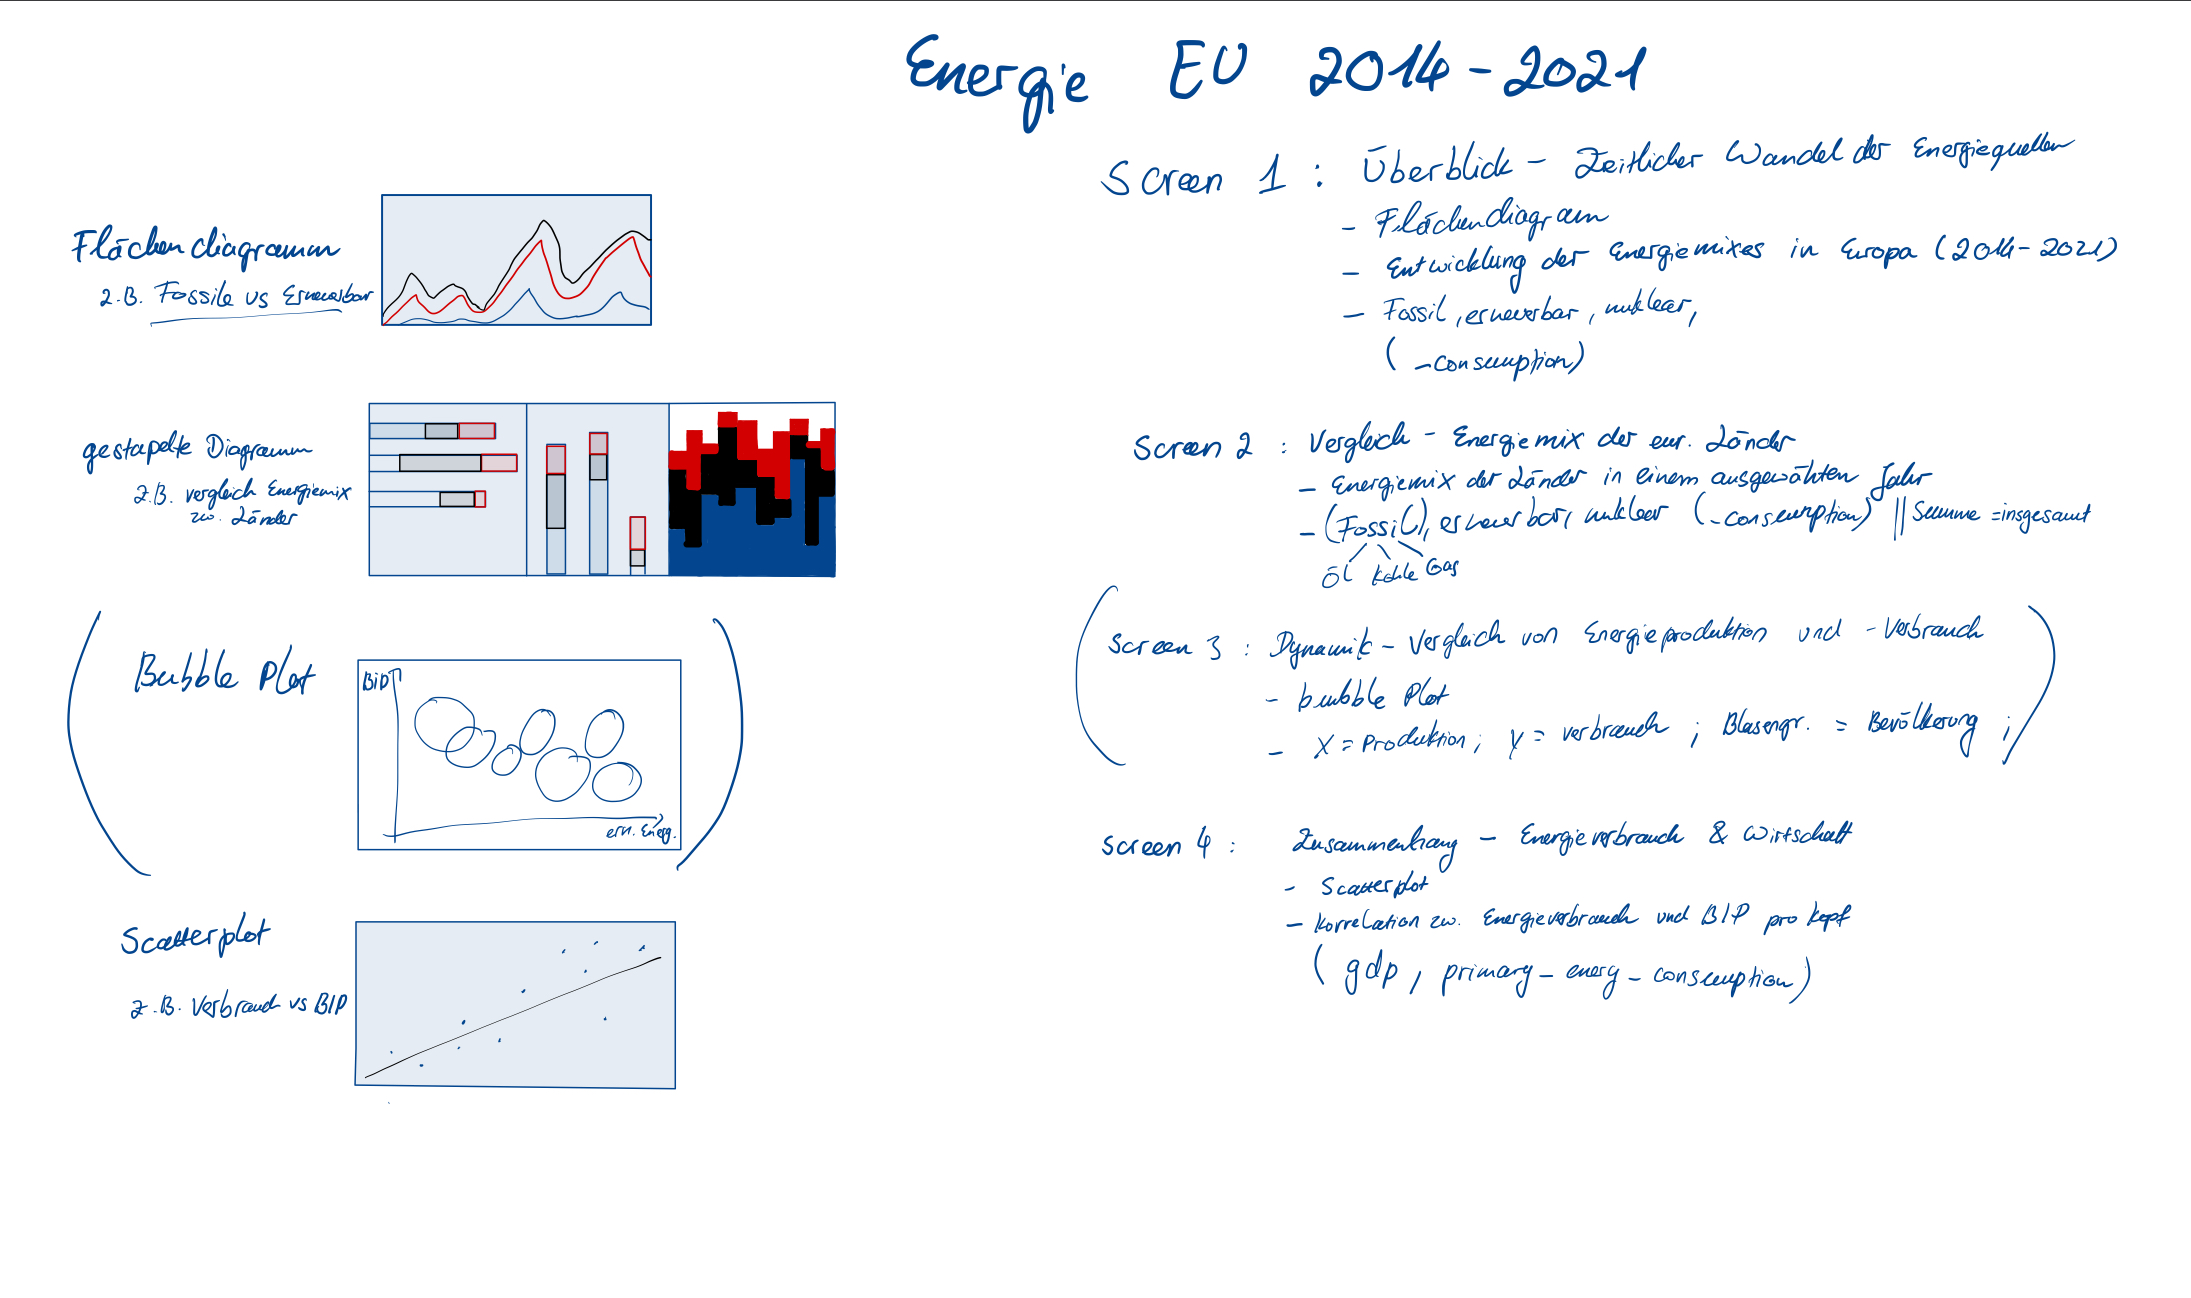 Energie EU 2014-2021
Flächendiagramm
z.B. Fossile vs Erneuerbar
gestapelte Diagramm
z.B. vergleich Energiemix
zw. Länder
Bubble Plot
BiP
ern. Energ.
Scatterplot
z.B. Verbrauch vs BIP
Screen 1 : Überblick - Zeitlicher Wandel der Energiequellen
- Flächendiagram
- Entwicklung der Energiemixes in Europa (2014-2021)
- Fossil, erneuerbar, nuklear,
( _consumption)
Screen 2 : Vergleich - Energiemix der eur. Länder
- Energiemix der Länder in einem ausgewählten Jahr
- (Fossil), erneuerbar, nuklear (_consumption) || Summe = insgesamt
Öl Kohle Gas
Screen 3 : Dynamik - Vergleich von Energieproduktion und -Verbrauch
- bubble Plot
- X = Produktion; y = verbrauch ; Blasengr. = Bevölkerung ;
Screen 4 : Zusammenhang - Energieverbrauch & Wirtschaft
- Scatterplot
- Korrelation zw. Energieverbrauch und BIP pro Kopf
( gdp, primary_energ_consumption)